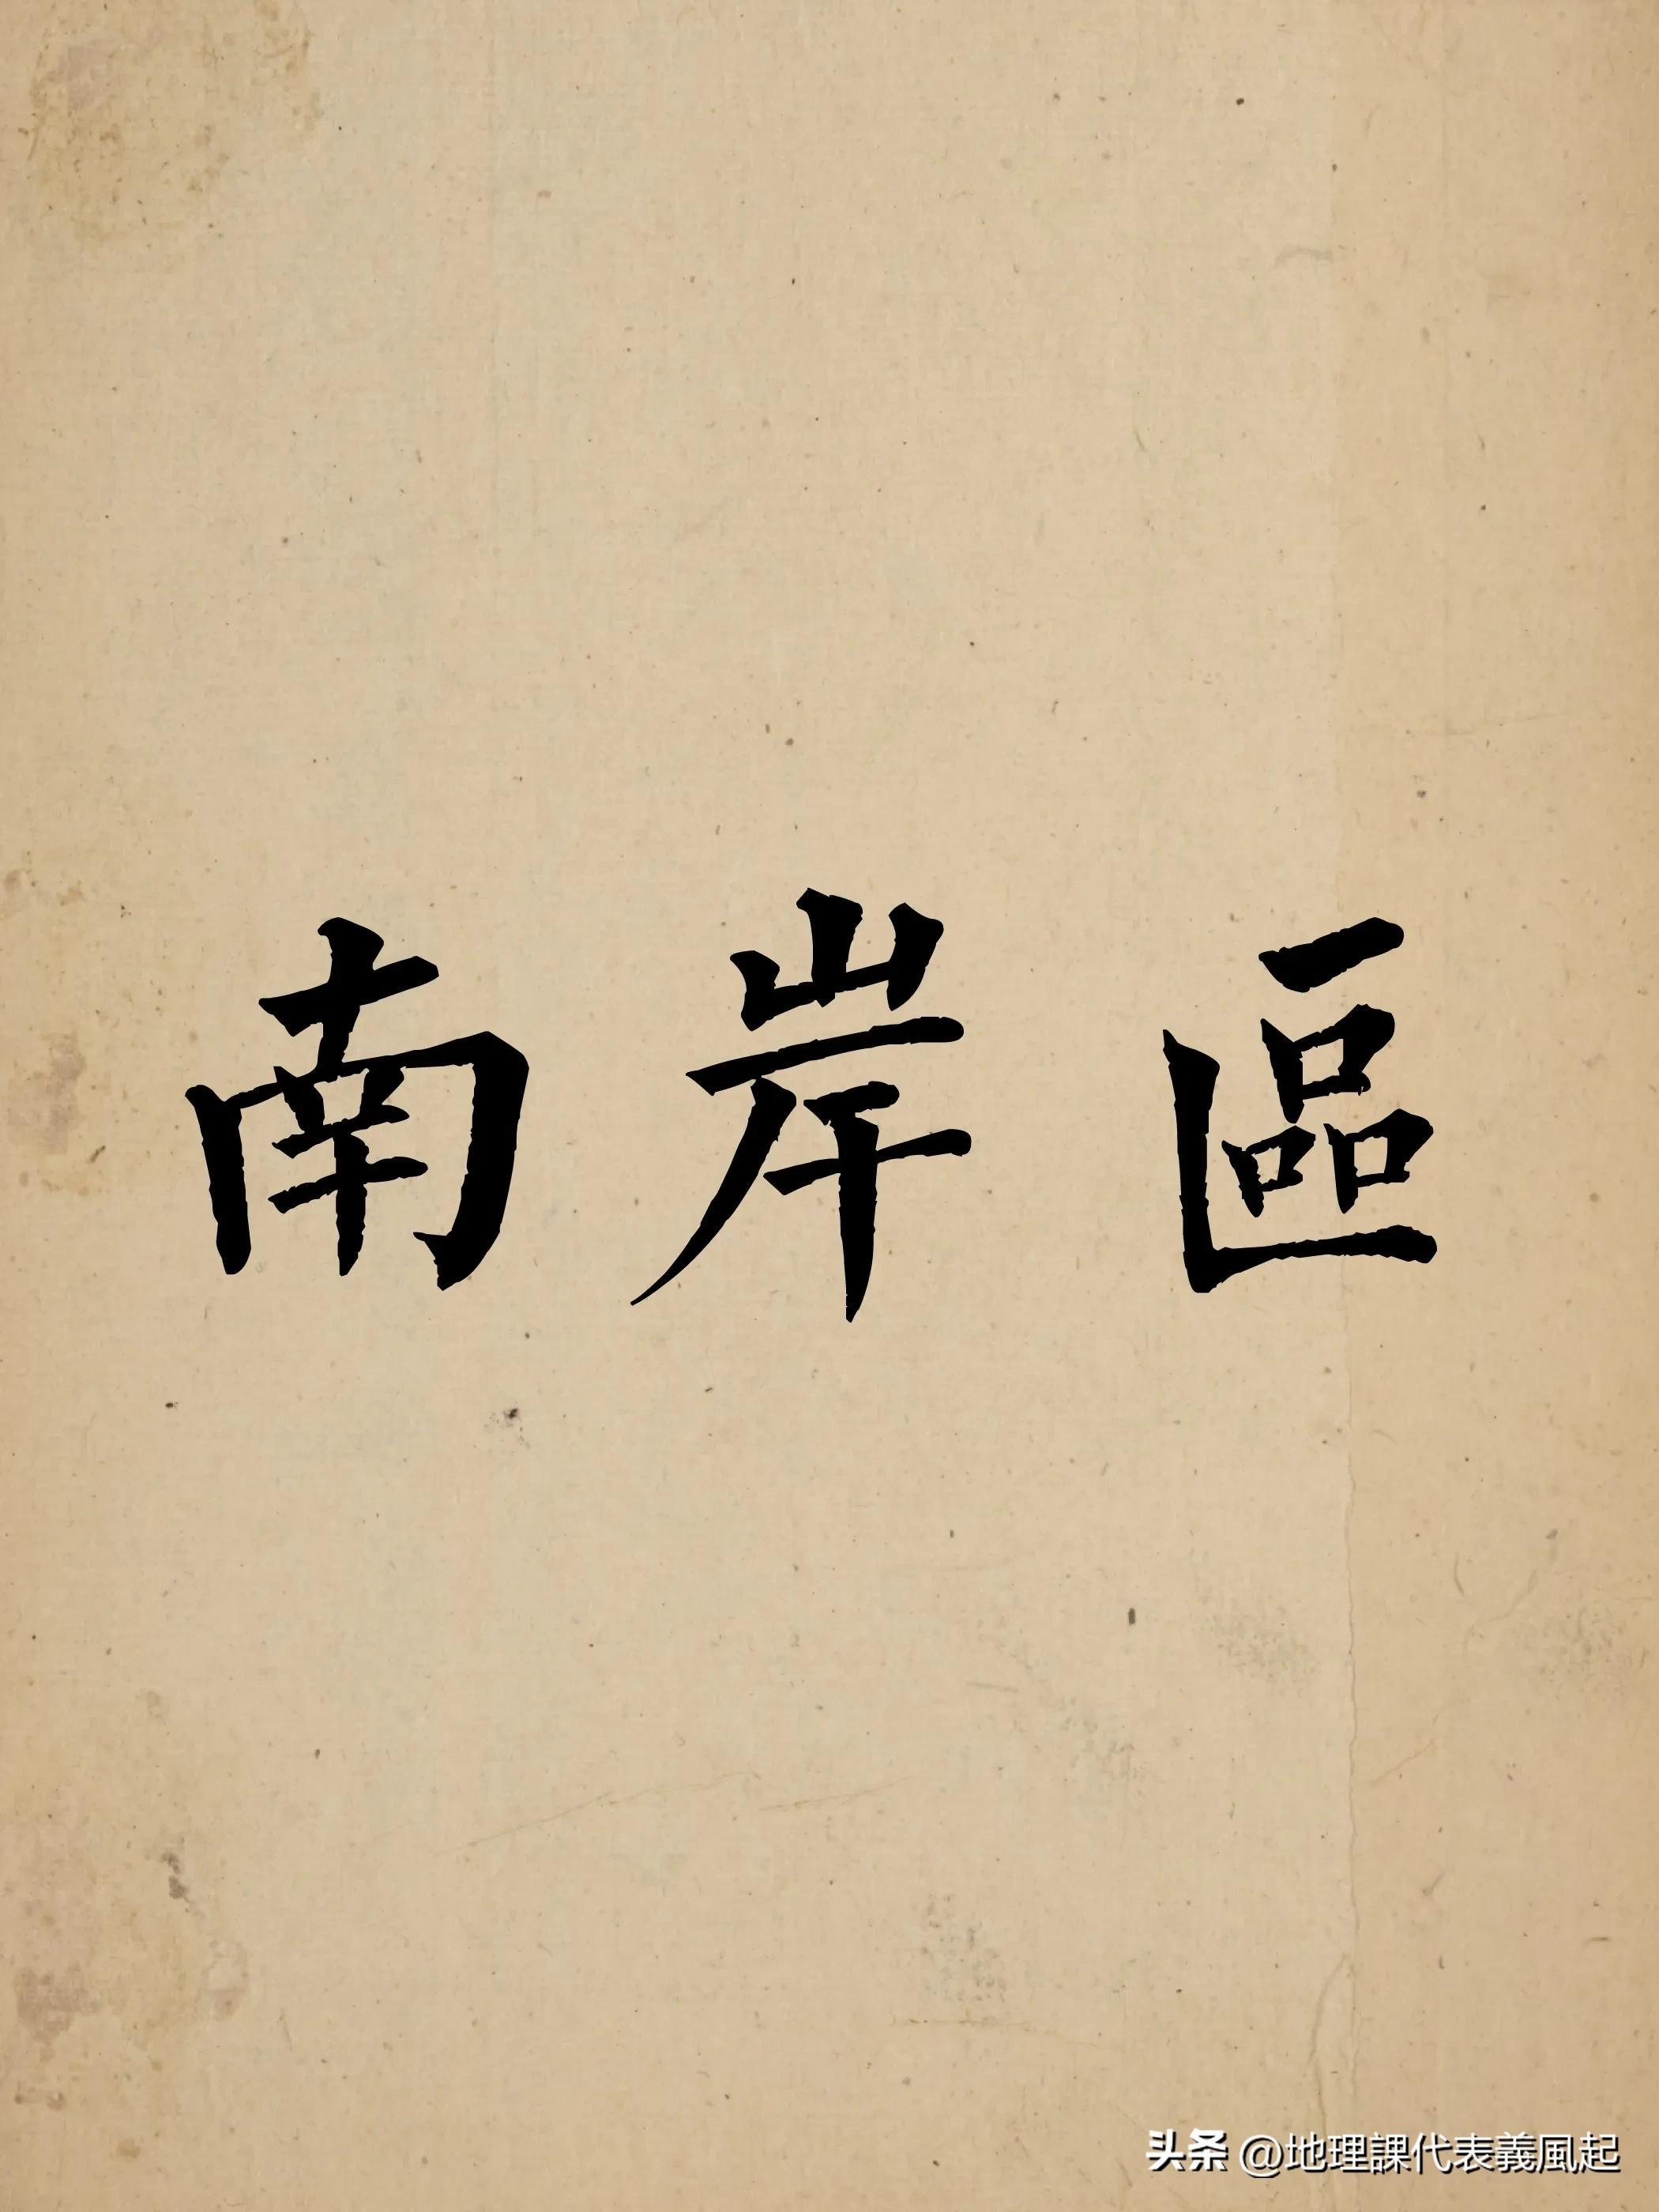 南岸區
头条 @地理課代表義風起